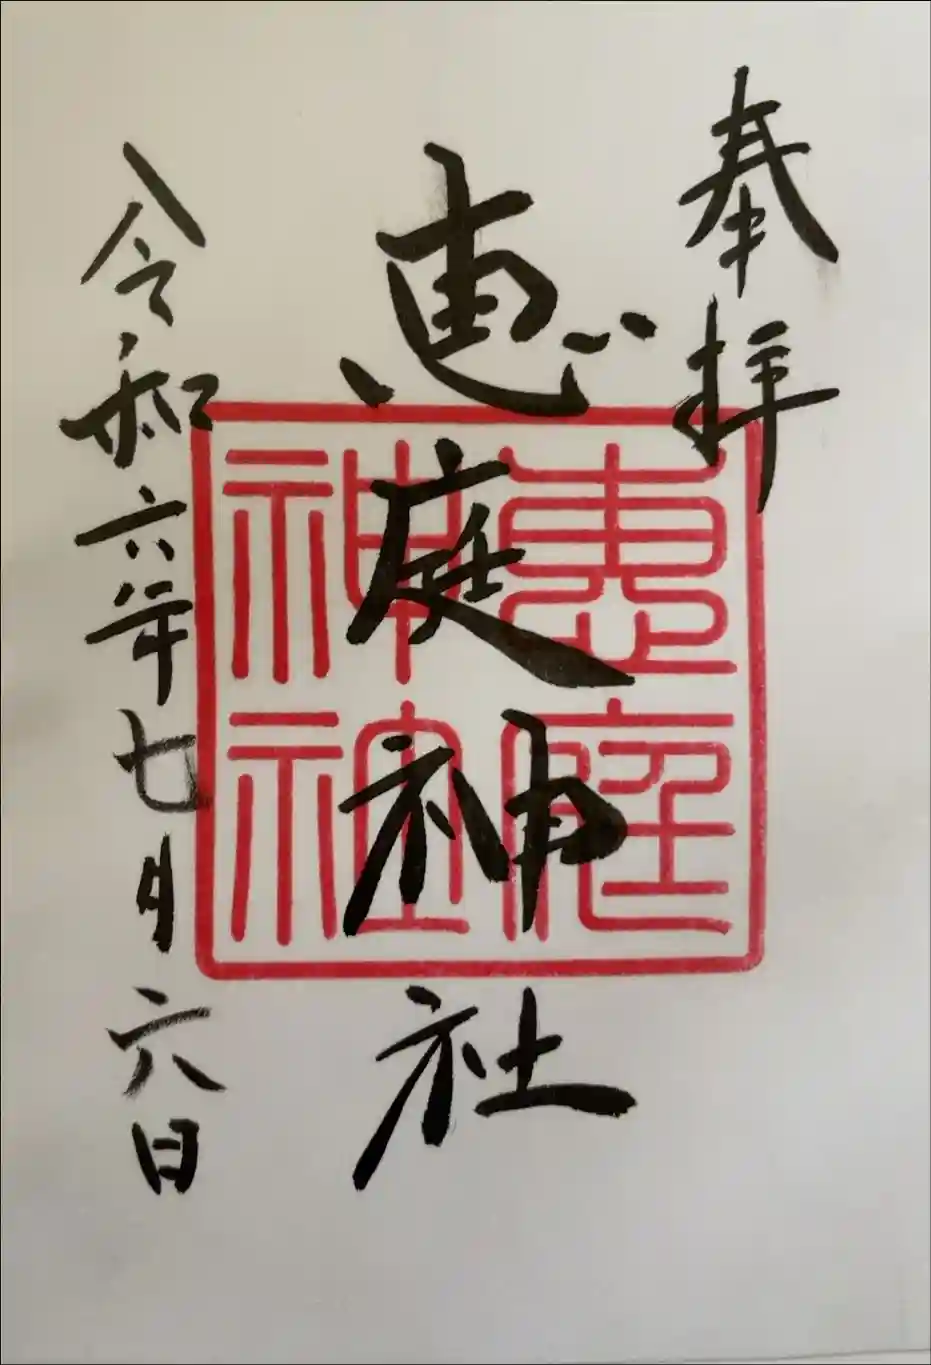 奉拝
恵庭神社
令和六年七月六日
惠庭
神社